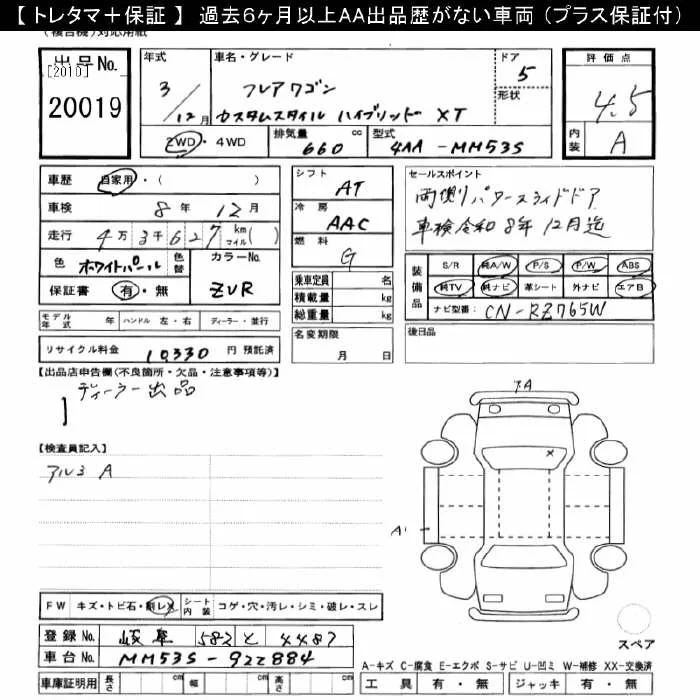 【 トレタマ＋保証 】 過去6ヶ月以上AA出品歴がない車両 (プラス保証付)
(複合機)対応用紙
出品No.
[2010]
20019
年式
3/12月
車名・グレード
フレアワゴン
カスタムスタイル ハイブリッド XT
ドア
5
形状
評価点
4.5
内装 A
2WD・4WD
排気量 660 cc
型式 4AA-MM53S
車歴 自家用・( )
車検 8年 12月
走行 4万3千627 km(マイル)
色 ホワイトパール 色替
カラーNo. ZVR
保証書 有・無
シフト AT
冷房 AAC
燃料 G
乗車定員 名
積載量 kg
総重量 kg
セールスポイント
両側パワースライドドア
車検令和8年12月迄
装備品 S/R 純A/W P/S P/W ABS
純TV 純ナビ 革シート 外ナビ エアB
ナビ型番: CN-RZ765W
モデル年式 年 ハンドル 左・右 ディーラー・並行
リサイクル料金 10330 円 預託済
名変期限
月 日
後日品
【出品店申告欄(不良箇所・欠品・注意事項等)】
ディーラー出品
【検査員記入】
アルミ A
アA
×
A'
FW キズ・トビ石・刷レメ
シート内装 コゲ・穴・汚レ・シミ・破レ・スレ
登録No. 岐阜 582 と 4487
車台No. MM53S-922884
車庫証明用 長さ cm 幅 cm 高さ cm
スペア
A-キズ C-腐食 E-エクボ S-サビ U-凹ミ W-補修 XX-交換済
工具 有・無 ジャッキ 有・無